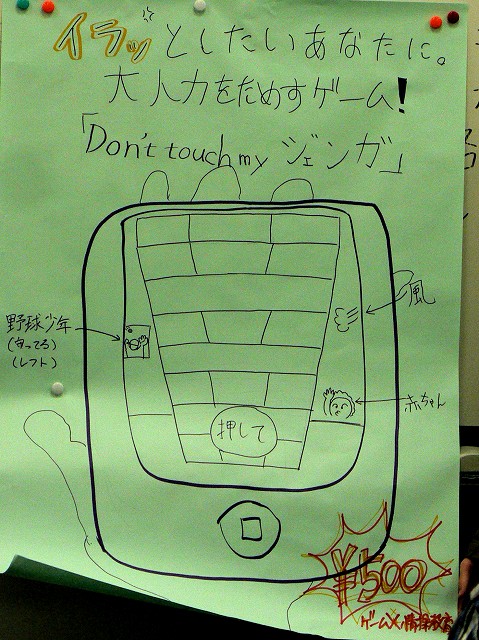 イラッとしたいあなたに。
大人力をためすゲーム!
「Don't touch my ジェンガ」
風
野球少年
(守ってる)
(レフト)
赤ちゃん
押して
¥500
ゲーム×情操教育